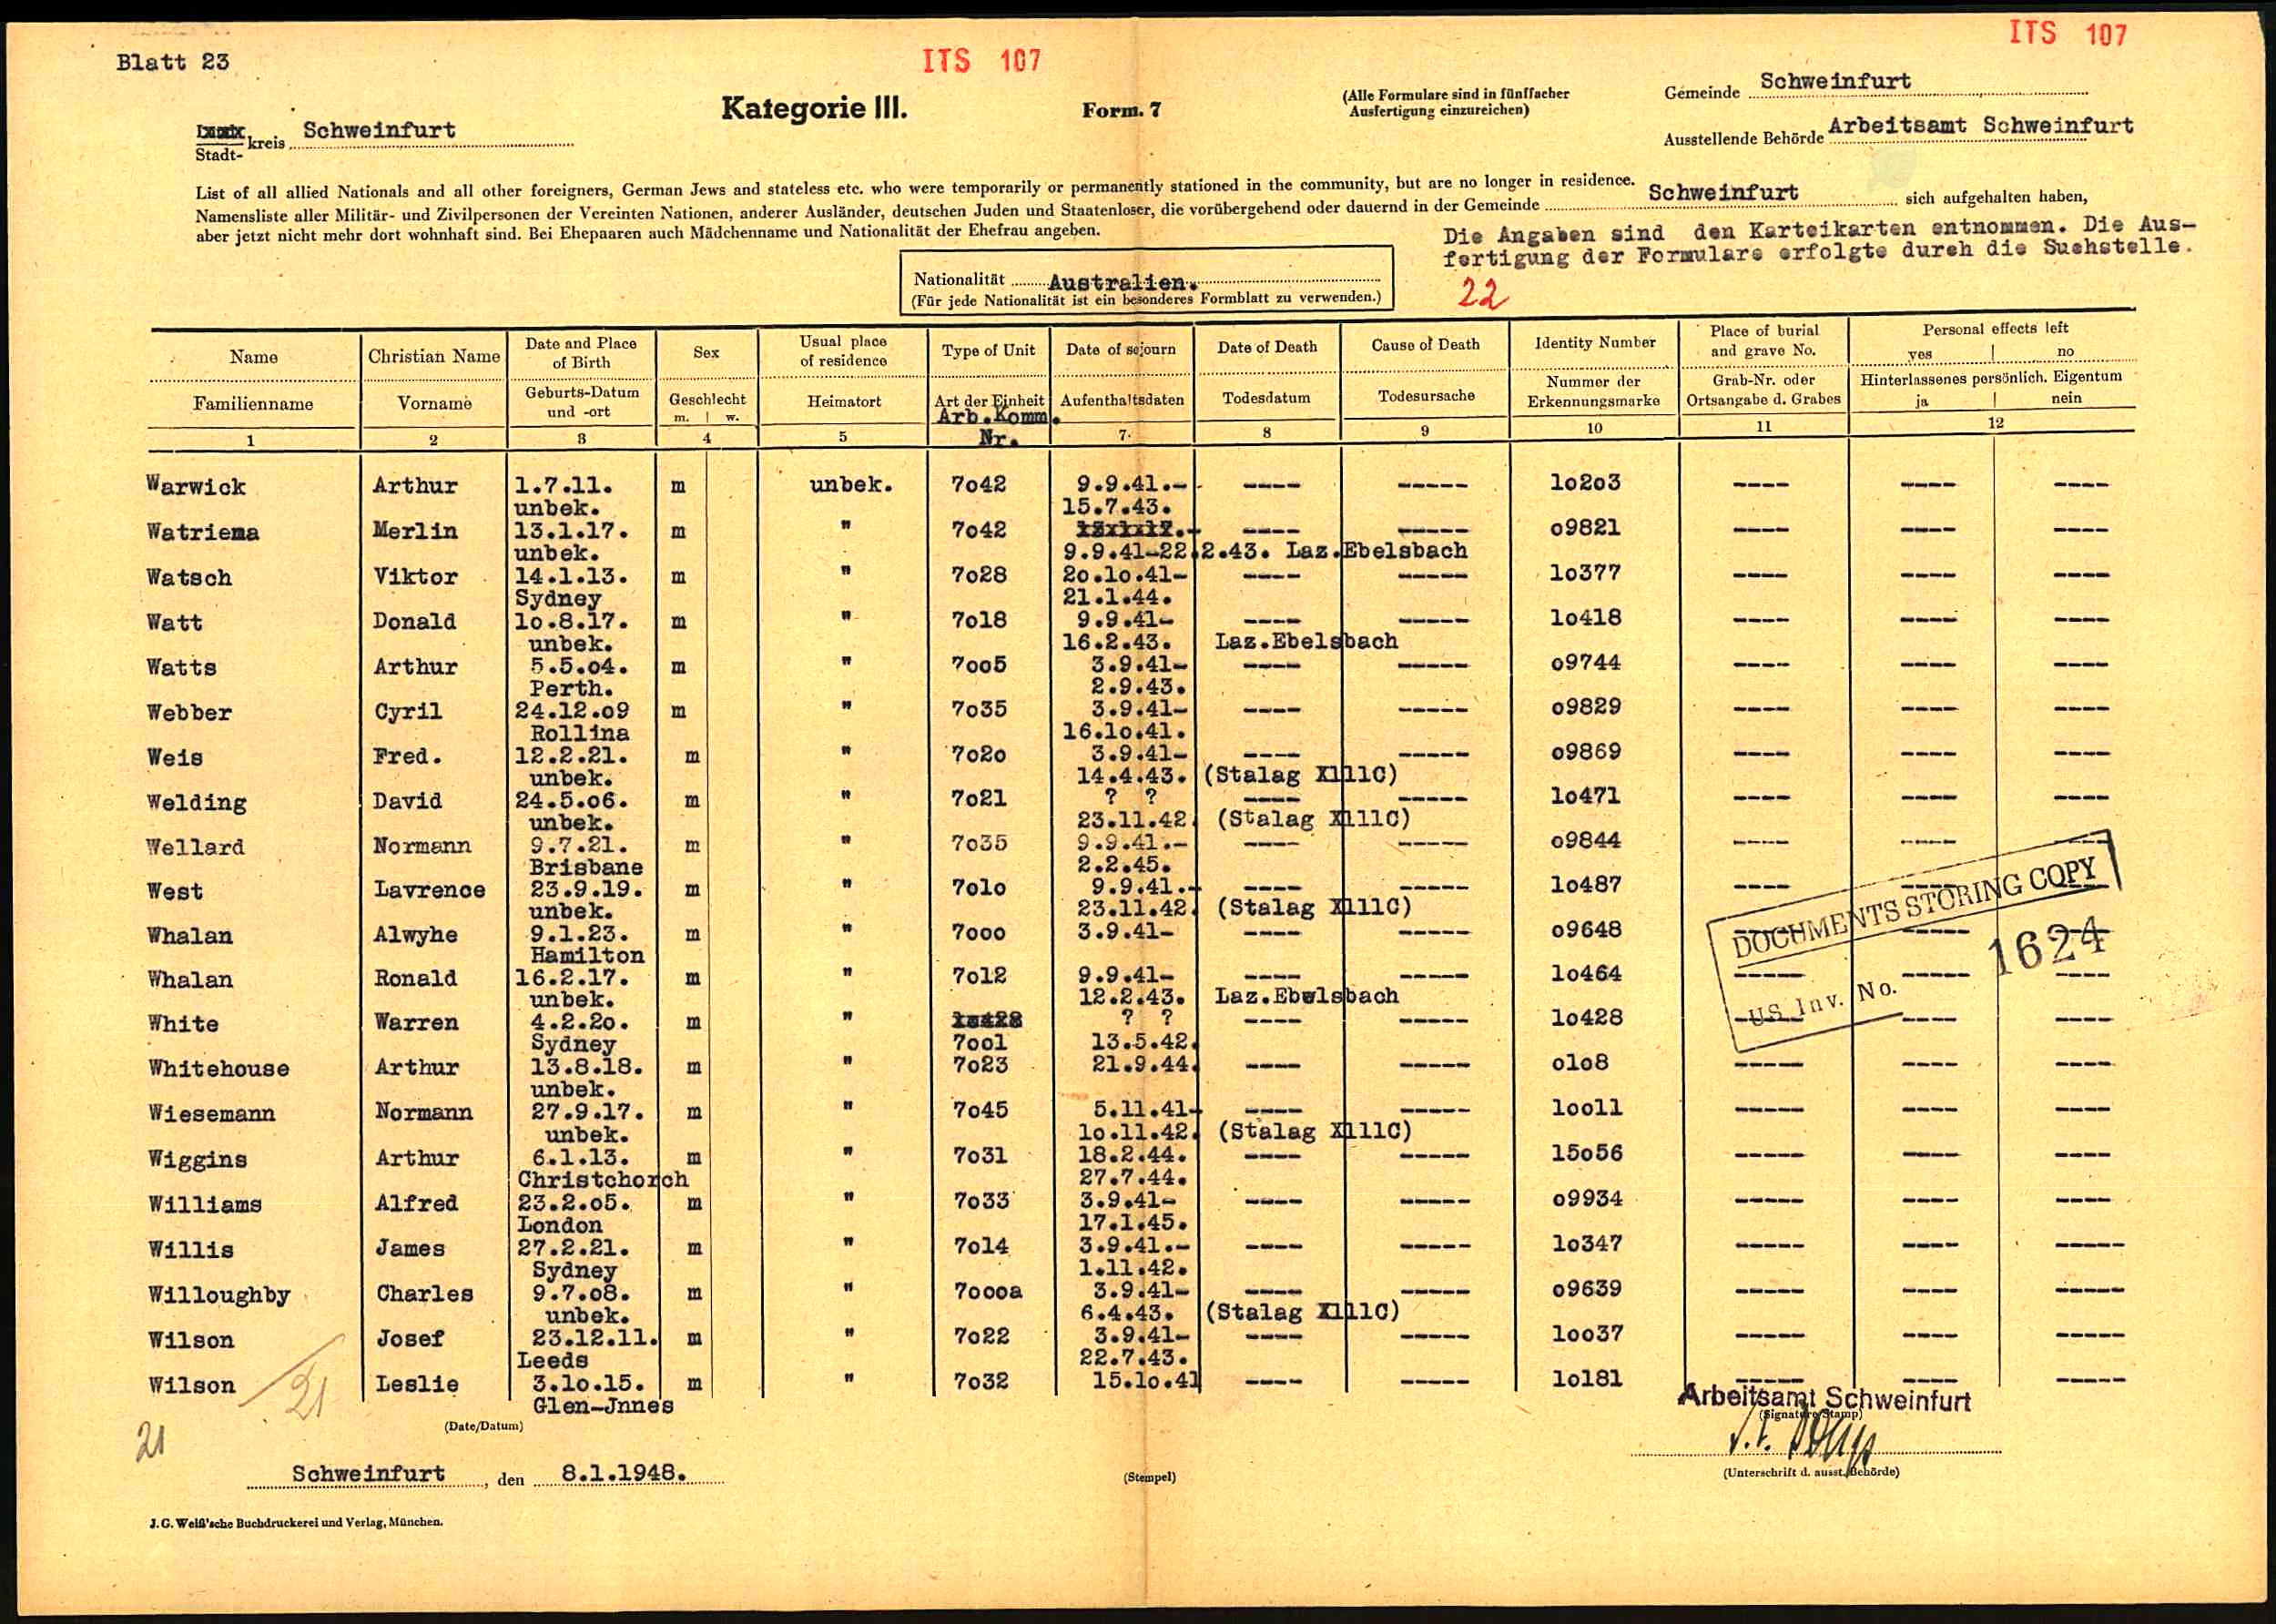 ITS 107
Blatt 23
ITS 107
Gemeinde Schweinfurt
Kategorie III.
Form. 7
(Alle Formulare sind in fünffacher
Ausfertigung einzureichen)
Stadt- kreis Schweinfurt
Ausstellende Behörde Arbeitsamt Schweinfurt
List of all allied Nationals and all other foreigners, German Jews and stateless etc. who were temporarily or permanently stationed in the community, but are no longer in residence.
Namensliste aller Militär- und Zivilpersonen der Vereinten Nationen, anderer Ausländer, deutschen Juden und Staatenloser, die vorübergehend oder dauernd in der Gemeinde Schweinfurt sich aufgehalten haben,
aber jetzt nicht mehr dort wohnhaft sind. Bei Ehepaaren auch Mädchenname und Nationalität der Ehefrau angeben.
Die Angaben sind den Karteikarten entnommen. Die Aus-
fertigung der Formulare erfolgte durch die Suchstelle.
Nationalität Australien.
(Für jede Nationalität ist ein besonderes Formblatt zu verwenden.)
22
Name Christian Name Date and Place of Birth Sex Usual place of residence Type of Unit Date of sejourn Date of Death Cause of Death Identity Number Place of burial and grave No. Personal effects left yes | no
Familienname Vorname Geburts-Datum und -ort Geschlecht m. | w. Heimatort Art der Einheit Arb.Komm. Nr. Aufenthaltsdaten Todesdatum Todesursache Nummer der Erkennungsmarke Grab-Nr. oder Ortsangabe d. Grabes Hinterlassenes persönlich. Eigentum ja | nein
1 2 3 4 5 7. 8 9 10 11 12
Warwick Arthur 1.7.11. m unbek. 7o42 9.9.41.- ---- ----- 1o2o3 ---- ---- ----
unbek. 15.7.43.
Watriema Merlin 13.1.17. m " 7o42 ---- ----- o9821 ---- ---- ----
unbek. 9.9.41-22.2.43. Laz.Ebelsbach
Watsch Viktor 14.1.13. m " 7o28 2o.1o.41- ---- ----- 1o377 ---- ---- ----
Sydney 21.1.44.
Watt Donald 1o.8.17. m " 7o18 9.9.41- ---- ----- 1o418 ---- ---- ----
unbek. 16.2.43. Laz.Ebelsbach
Watts Arthur 5.5.o4. m " 7oo5 3.9.41- ---- ----- o9744 ---- ---- ----
Perth. 2.9.43.
Webber Cyril 24.12.o9 m " 7o35 3.9.41- ---- ----- o9829 ---- ---- ----
Rollina 16.1o.41.
Weis Fred. 12.2.21. m " 7o2o 3.9.41- ---- ----- o9869 ---- ---- ----
unbek. 14.4.43. (Stalag X111C)
Welding David 24.5.o6. m " 7o21 ? ? ---- ----- 1o471 ---- ---- ----
unbek. 23.11.42. (Stalag X111C)
Wellard Normann 9.7.21. m " 7o35 9.9.41.- ---- ----- o9844 ---- ---- ----
Brisbane 2.2.45.
West Lavrence 23.9.19. m " 7o1o 9.9.41.- ---- ----- 1o487 ---- ---- ----
unbek. 23.11.42. (Stalag X111C)
Whalan Alwyhe 9.1.23. m " 7ooo 3.9.41- ---- ----- o9648 ----- ---- ----
Hamilton
Whalan Ronald 16.2.17. m " 7o12 9.9.41- ---- ----- 1o464 ----- ----- ----
unbek. 12.2.43. Laz.Ebelsbach
White Warren 4.2.2o. m " ? ? ---- ----- 1o428 ----- ---- ----
Sydney 7oo1 13.5.42.
Whitehouse Arthur 13.8.18. m " 7o23 21.9.44. ---- ----- o1o8 ----- ---- ----
unbek.
Wiesemann Normann 27.9.17. m " 7o45 5.11.41- ---- ----- 1oo11 ----- ---- ----
unbek. 1o.11.42. (Stalag X111C)
Wiggins Arthur 6.1.13. m " 7o31 18.2.44. ---- ----- 15o56 ----- ---- ----
Christchorch 27.7.44.
Williams Alfred 23.2.o5. m " 7o33 3.9.41- ---- ----- o9934 ----- ---- -----
London 17.1.45.
Willis James 27.2.21. m " 7o14 3.9.41.- ---- ----- 1o347 ----- ---- -----
Sydney 1.11.42.
Willoughby Charles 9.7.o8. m " 7oooa 3.9.41- ---- ----- o9639 ----- ---- -----
unbek. 6.4.43. (Stalag X111C)
Wilson Josef 23.12.11. m " 7o22 3.9.41- ---- ----- 1oo37 ----- ---- -----
Leeds 22.7.43.
Wilson Leslie 3.1o.15. m " 7o32 15.1o.41 ---- ----- 1o181 ----- ---- -----
Glen-Jnnes
DOCUMENTS STORING COPY
US Inv. No. 1624
21
21
Arbeitsamt Schweinfurt
(Signature Stamp)
(Date/Datum)
Schweinfurt, den 8.1.1948.
(Stempel)
(Unterschrift d. ausst. Behörde)
J. G. Weiß'sche Buchdruckerei und Verlag, München.